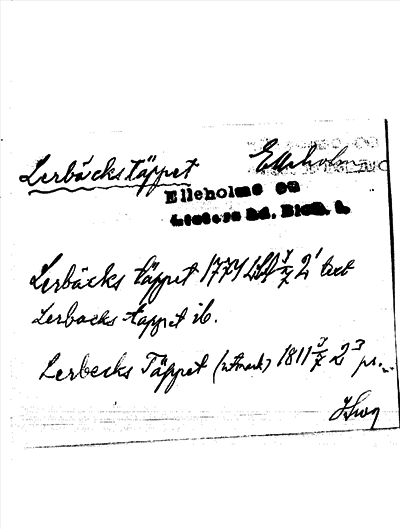 Lerbäckstäppet Elleholm
Elleholms sn
Listers hd, Blek. l.
Lerbäcks täppet 1774 2¹ text
Lerbacks täppet ib.
Lerbecks Täppet (utmark) 1811 2³ pr.